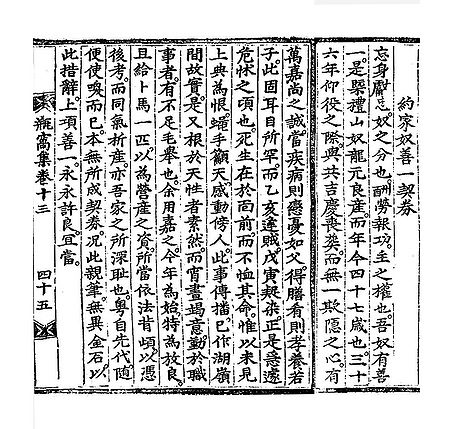 約家奴善一契券
忘身奴之分也酬勞報功主之權也吾奴有善
一是禮山奴龍元良産而年今四十七歲也三十
六年仰役之際與共吉慶喪葬而無一欺隱之心有
萬嘉尚之誠當疾病則憂如父得膳肴則孝養若
子此固耳目所罕而乙亥逢賊戊寅染正是急遽
危怵之頃也死生在於面前而不恤其命惟以未見
上典為恨手顧天感動傍人此事傳播已作湖嶺
間故實是又根於天性者素然而宵晝竭意動於職
事者有不足毛舉也余用嘉之今年為始特為放良
且給卜馬一匹以為營産之資所當依法以憑
後考而同氣析産亦吾家之所深恥也粤自先代随
便使喚而已本無所成契券况此親筆無異金石以
此措辭上項善一永永許良宜當
瓶窩集卷十三
四十五